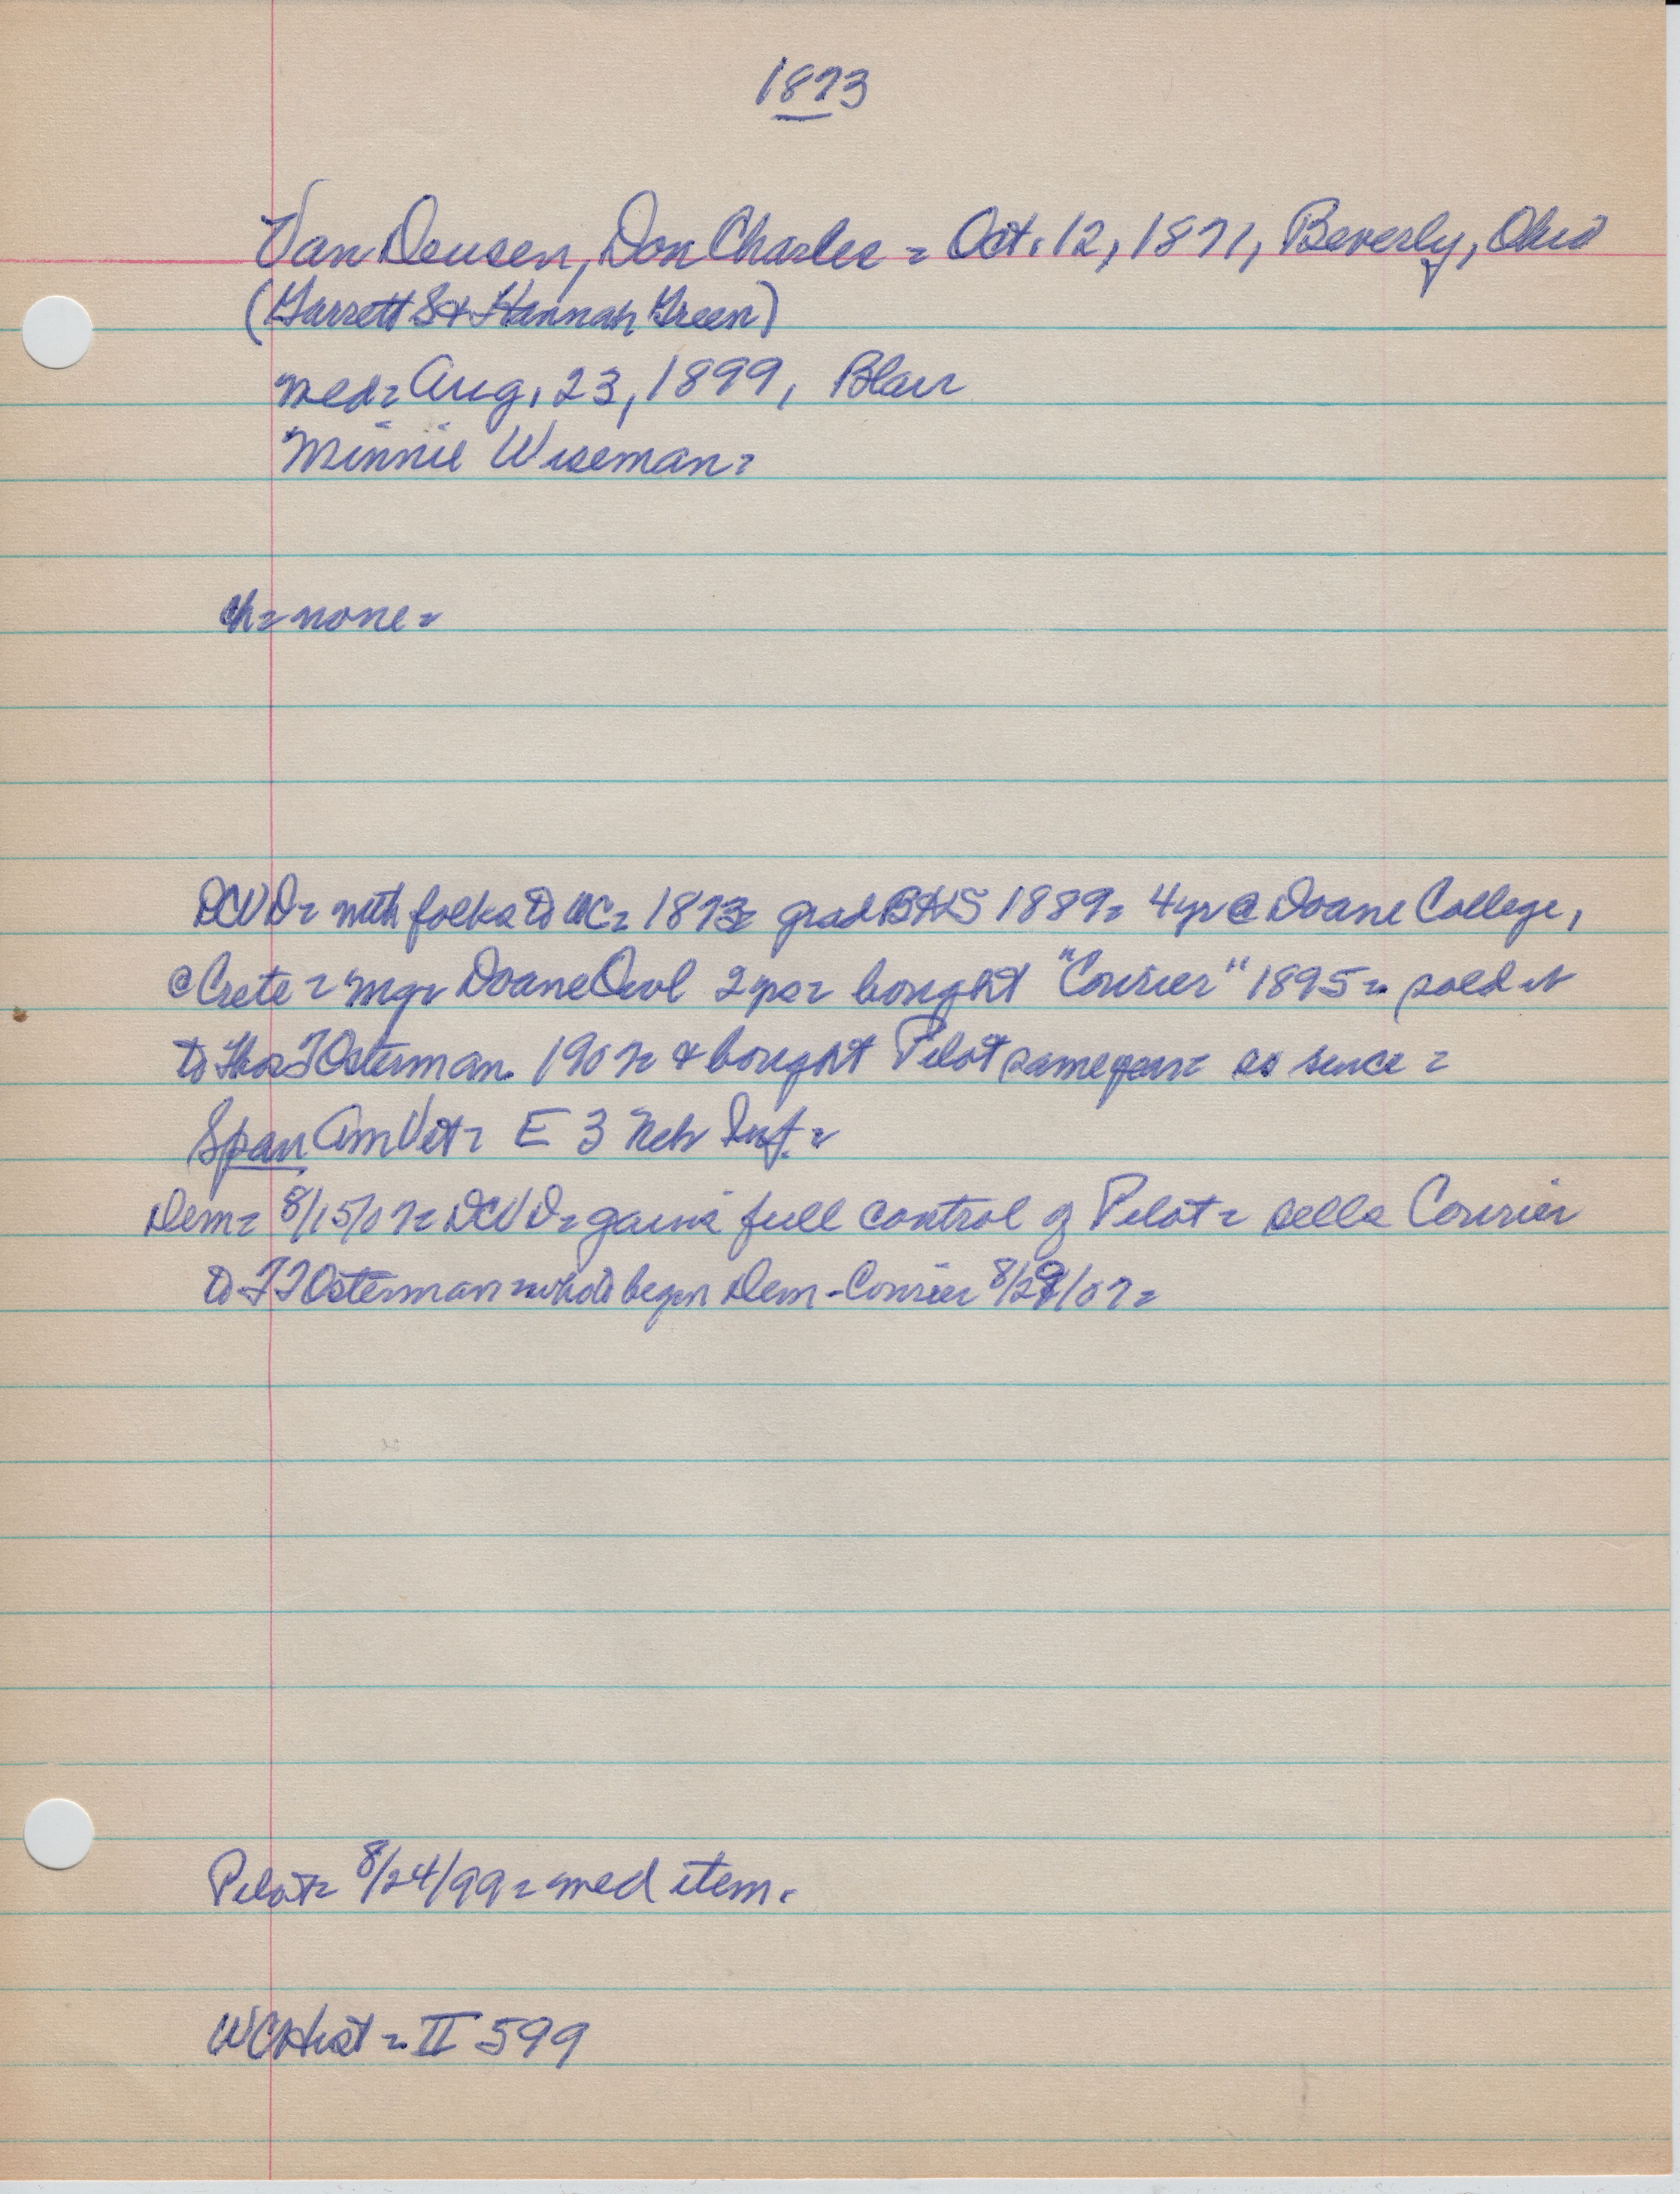 1873
Van Deusen, Don Charles = Oct. 12, 1871, Beverly, Ohio
(Garrett S & Hannah Green)
med = Aug. 23, 1899, Blair
Minnie Wiseman =
ch = none =
DCVD = with folks to WC = 1873 = grad BHS 1889 = 4 yr @ Doane College,
@ Crete = mgr Doane Owl 2 yrs = bought "Courier" 1895 = sold it
to Thos T Osterman 1907 = & bought Pilot same year = as since =
Span Am Vet = E 3 Neb Inf. =
Dem = 8/15/07 = DCVD = gains full control of Pilot = sells Courier
to T T Osterman = who to begin Dem-Courier 8/29/07 =
Pilot = 8/24/99 = med item.
WC Hist = II 599